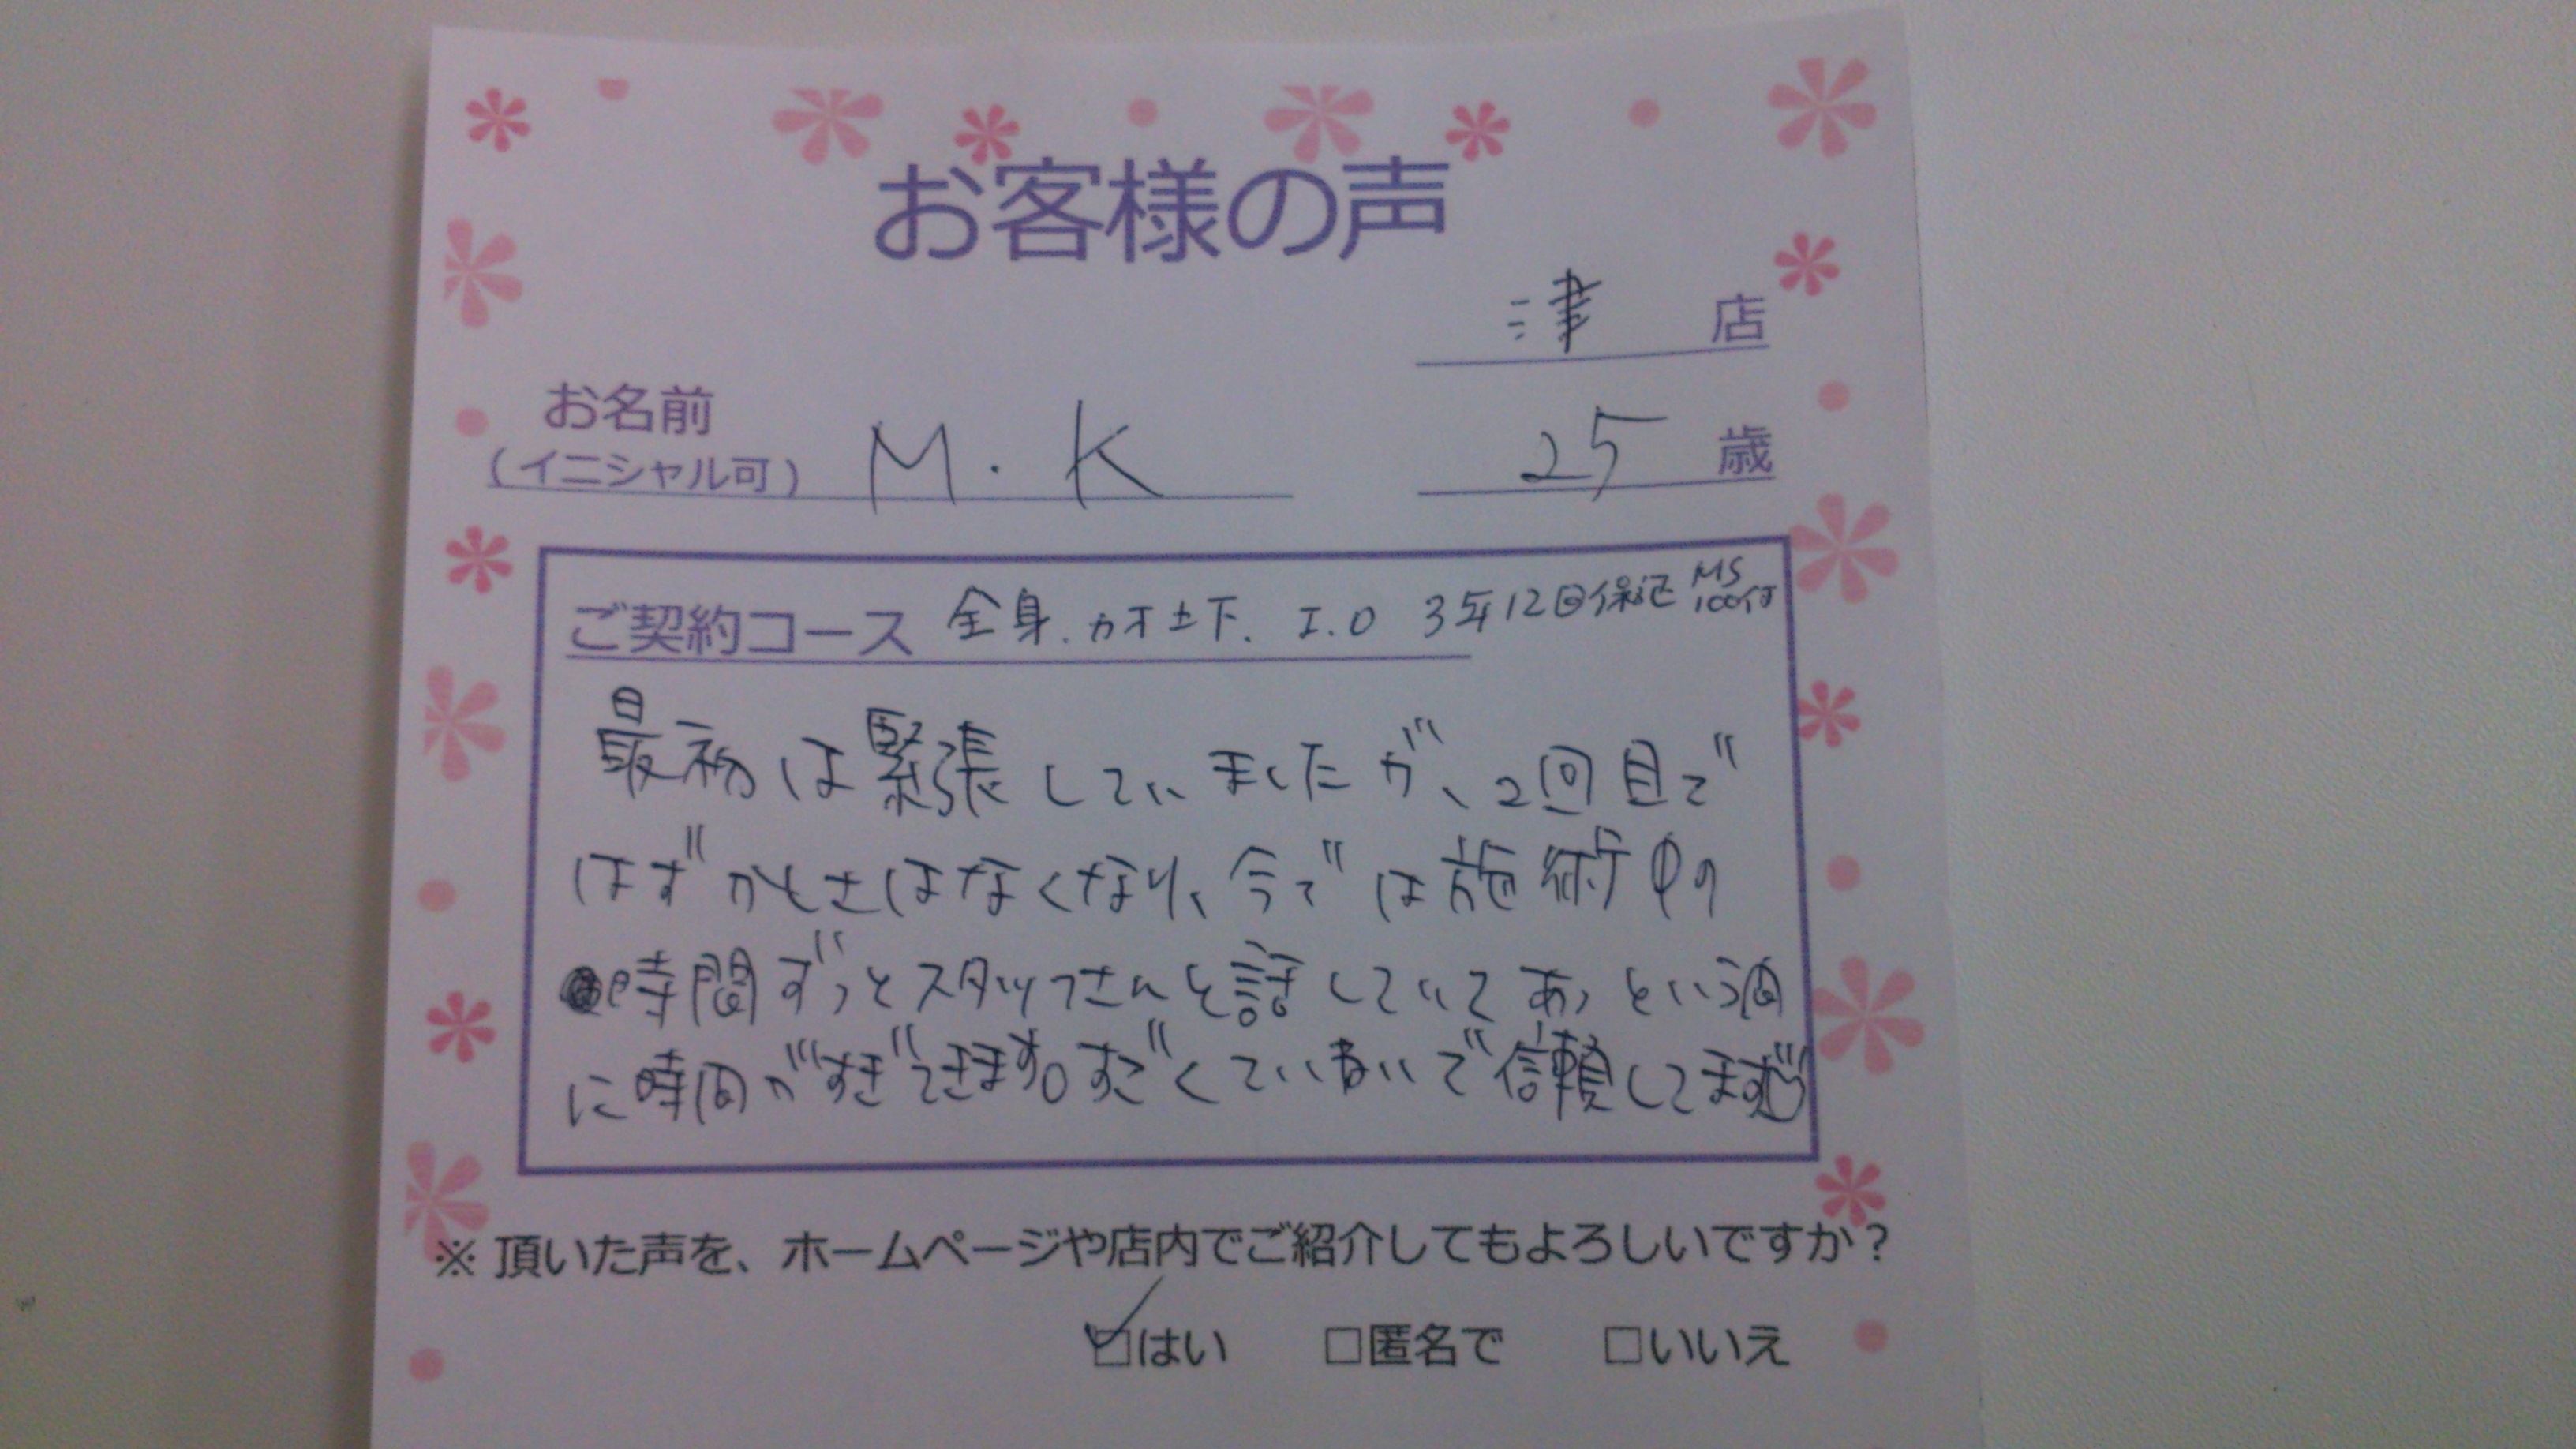 お客様の声
津 店
お名前
(イニシャル可) M.K 25 歳
ご契約コース 全身.カオ土下.I.O 3年12回保証 MS
100付
最初は緊張していましたが、2回目で
はずかしさはなくなり、今では施術中の
時間ずっとスタッフさんと話していてあっという間
に時間がすぎてきます。すごくていねいで信頼してます
※頂いた声を、ホームページや店内でご紹介してもよろしいですか？
☑はい □匿名で □いいえ